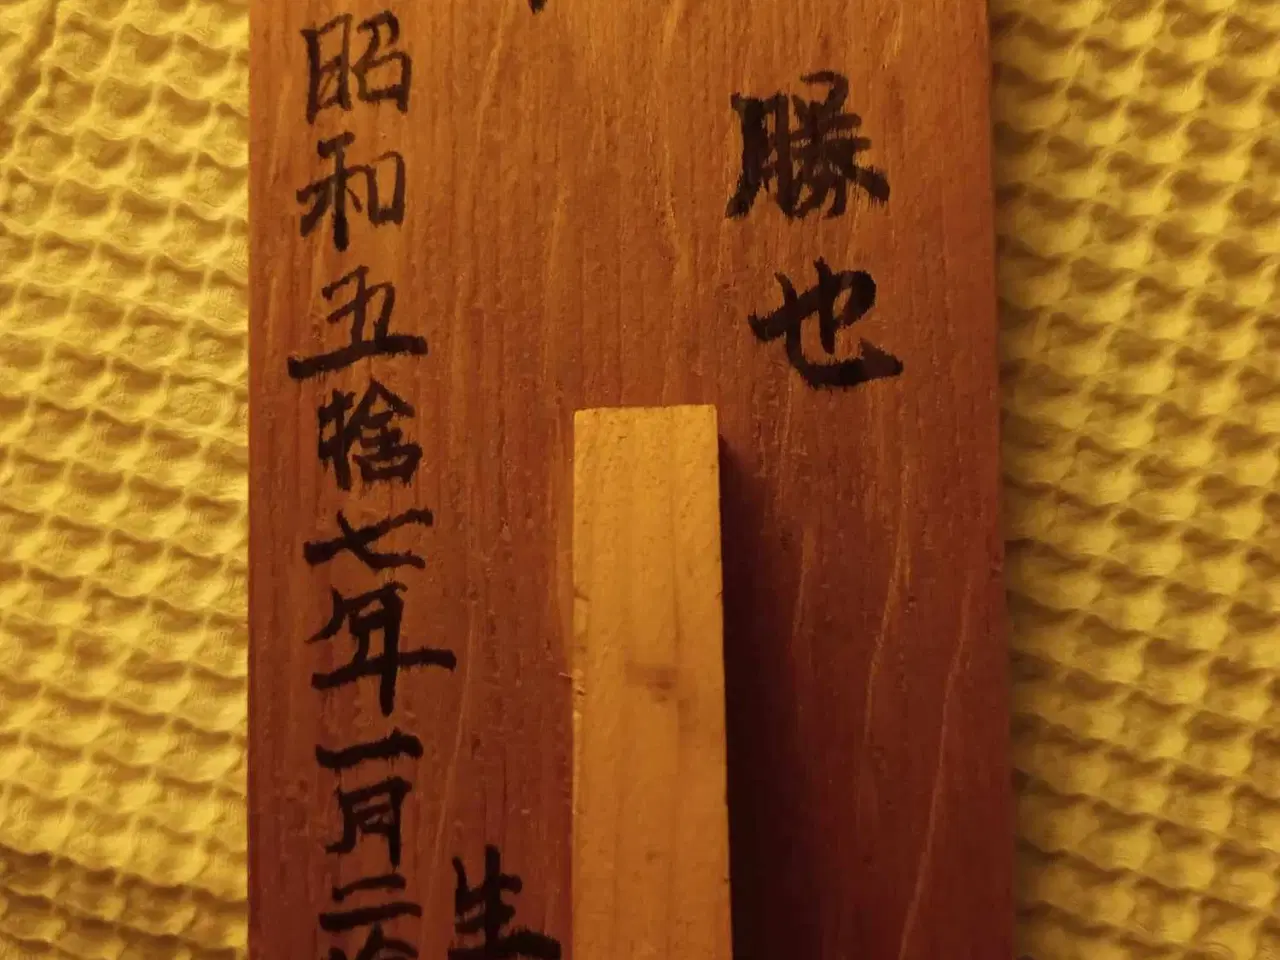 勝也
生
昭和五捨七年一月二